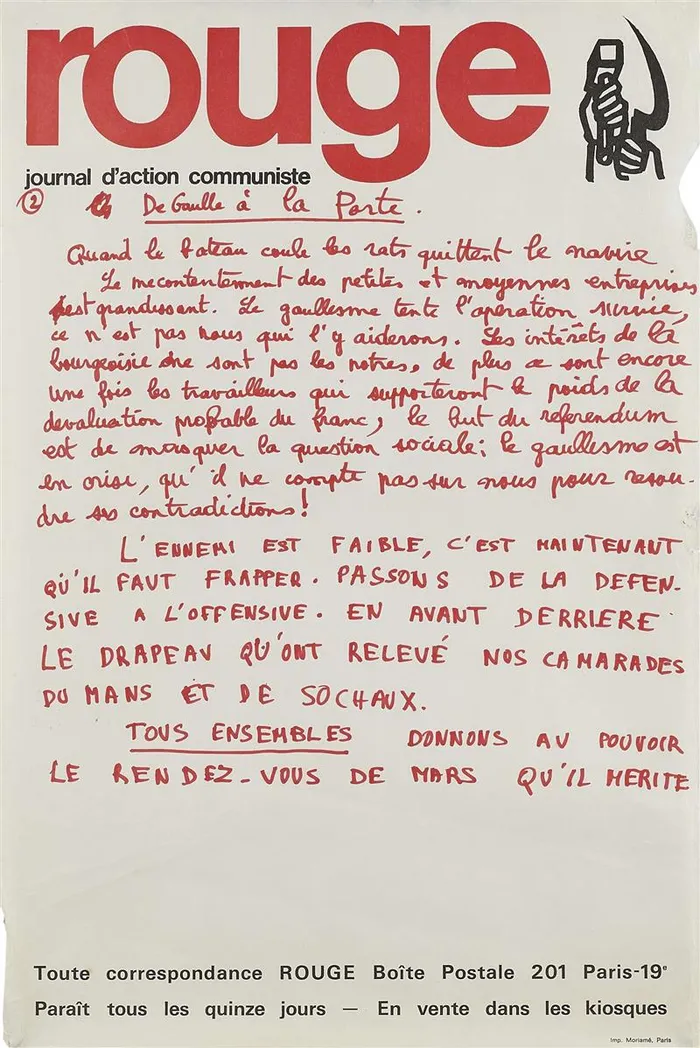 rouge
journal d'action communiste
② De Gaulle à la Porte.
Quand le bateau coule les rats quittent le navire
Le mecontentement des petites et moyennes entreprises
est grandissant. Le gaullesme tente l'operation survie,
ce n'est pas nous qui l'y aiderons. Les intérêts de la
bourgeoisie ne sont pas les notres, de plus ce sont encore
une fois les travailleurs qui supporteront le poids de la
devaluation probable du franc, le but du referendum
est de masquer la question sociale; le gaullesme est
en crise, qu'il ne compte pas sur nous pour resou-
dre ses contradictions!
L'ENNEMI EST FAIBLE, C'EST MAINTENANT
QU'IL FAUT FRAPPER. PASSONS DE LA DEFEN-
SIVE A L'OFFENSIVE. EN AVANT DERRIERE
LE DRAPEAU QU'ONT RELEVÉ NOS CAMARADES
DU MANS ET DE SOCHAUX.
TOUS ENSEMBLES DONNONS AU POUVOIR
LE RENDEZ-VOUS DE MARS QU'IL MERITE
Toute correspondance ROUGE Boîte Postale 201 Paris-19e
Paraît tous les quinze jours — En vente dans les kiosques
Imp. Moriamé, Paris